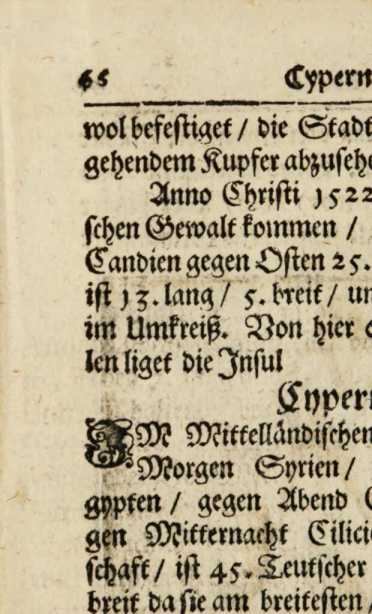 65 Cypern
wol befestiget / die Stadt
gehendem Kupfer abzusehe
Anno Christi 1522
schen Gewalt kommen /
Candien gegen Osten 25.
ist 13. lang / 5. breit / un
im Umkreiß. Von hier
len liget die Insul
Cypern
IM Mittelländischen
Morgen Syrien /
gypten / gegen Abend
gen Mitternacht Cilici
schaft / ist 45. Teutscher
breit da sie am breitesten